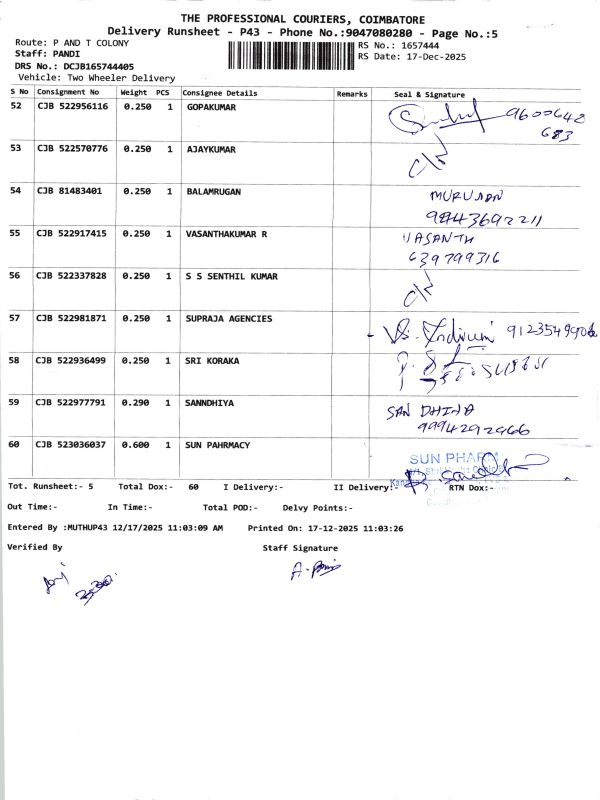 THE PROFESSIONAL COURIERS, COIMBATORE
Delivery Runsheet - P43 - Phone No.:9047080280 - Page No.:5
Route: P AND T COLONY
RS No.: 1657444
Staff: PANDI
RS Date: 17-Dec-2025
DRS No.: DCJB165744405
Vehicle: Two Wheeler Delivery
S No Consignment No Weight PCS Consignee Details Remarks Seal & Signature
52 CJB 522956116 0.250 1 GOPAKUMAR 9600648
683
53 CJB 522570776 0.250 1 AJAYKUMAR
54 CJB 81483401 0.250 1 BALAMRUGAN MURUGAN
9843692211
55 CJB 522917415 0.250 1 VASANTHAKUMAR R VASANTH
639799316
56 CJB 522337828 0.250 1 S S SENTHIL KUMAR
57 CJB 522981871 0.250 1 SUPRAJA AGENCIES
58 CJB 522936499 0.250 1 SRI KORAKA
59 CJB 522977791 0.290 1 SANNDHIYA SANDHIYA
9994292966
60 CJB 523036037 0.600 1 SUN PAHRMACY
SUN PHARM
Tot. Runsheet:- 5 Total Dox:- 60 I Delivery:- II Delivery:- RTN Dox:-
Out Time:- In Time:- Total POD:- Delvy Points:-
Entered By :MUTHUP43 12/17/2025 11:03:09 AM Printed On: 17-12-2025 11:03:26
Verified By Staff Signature